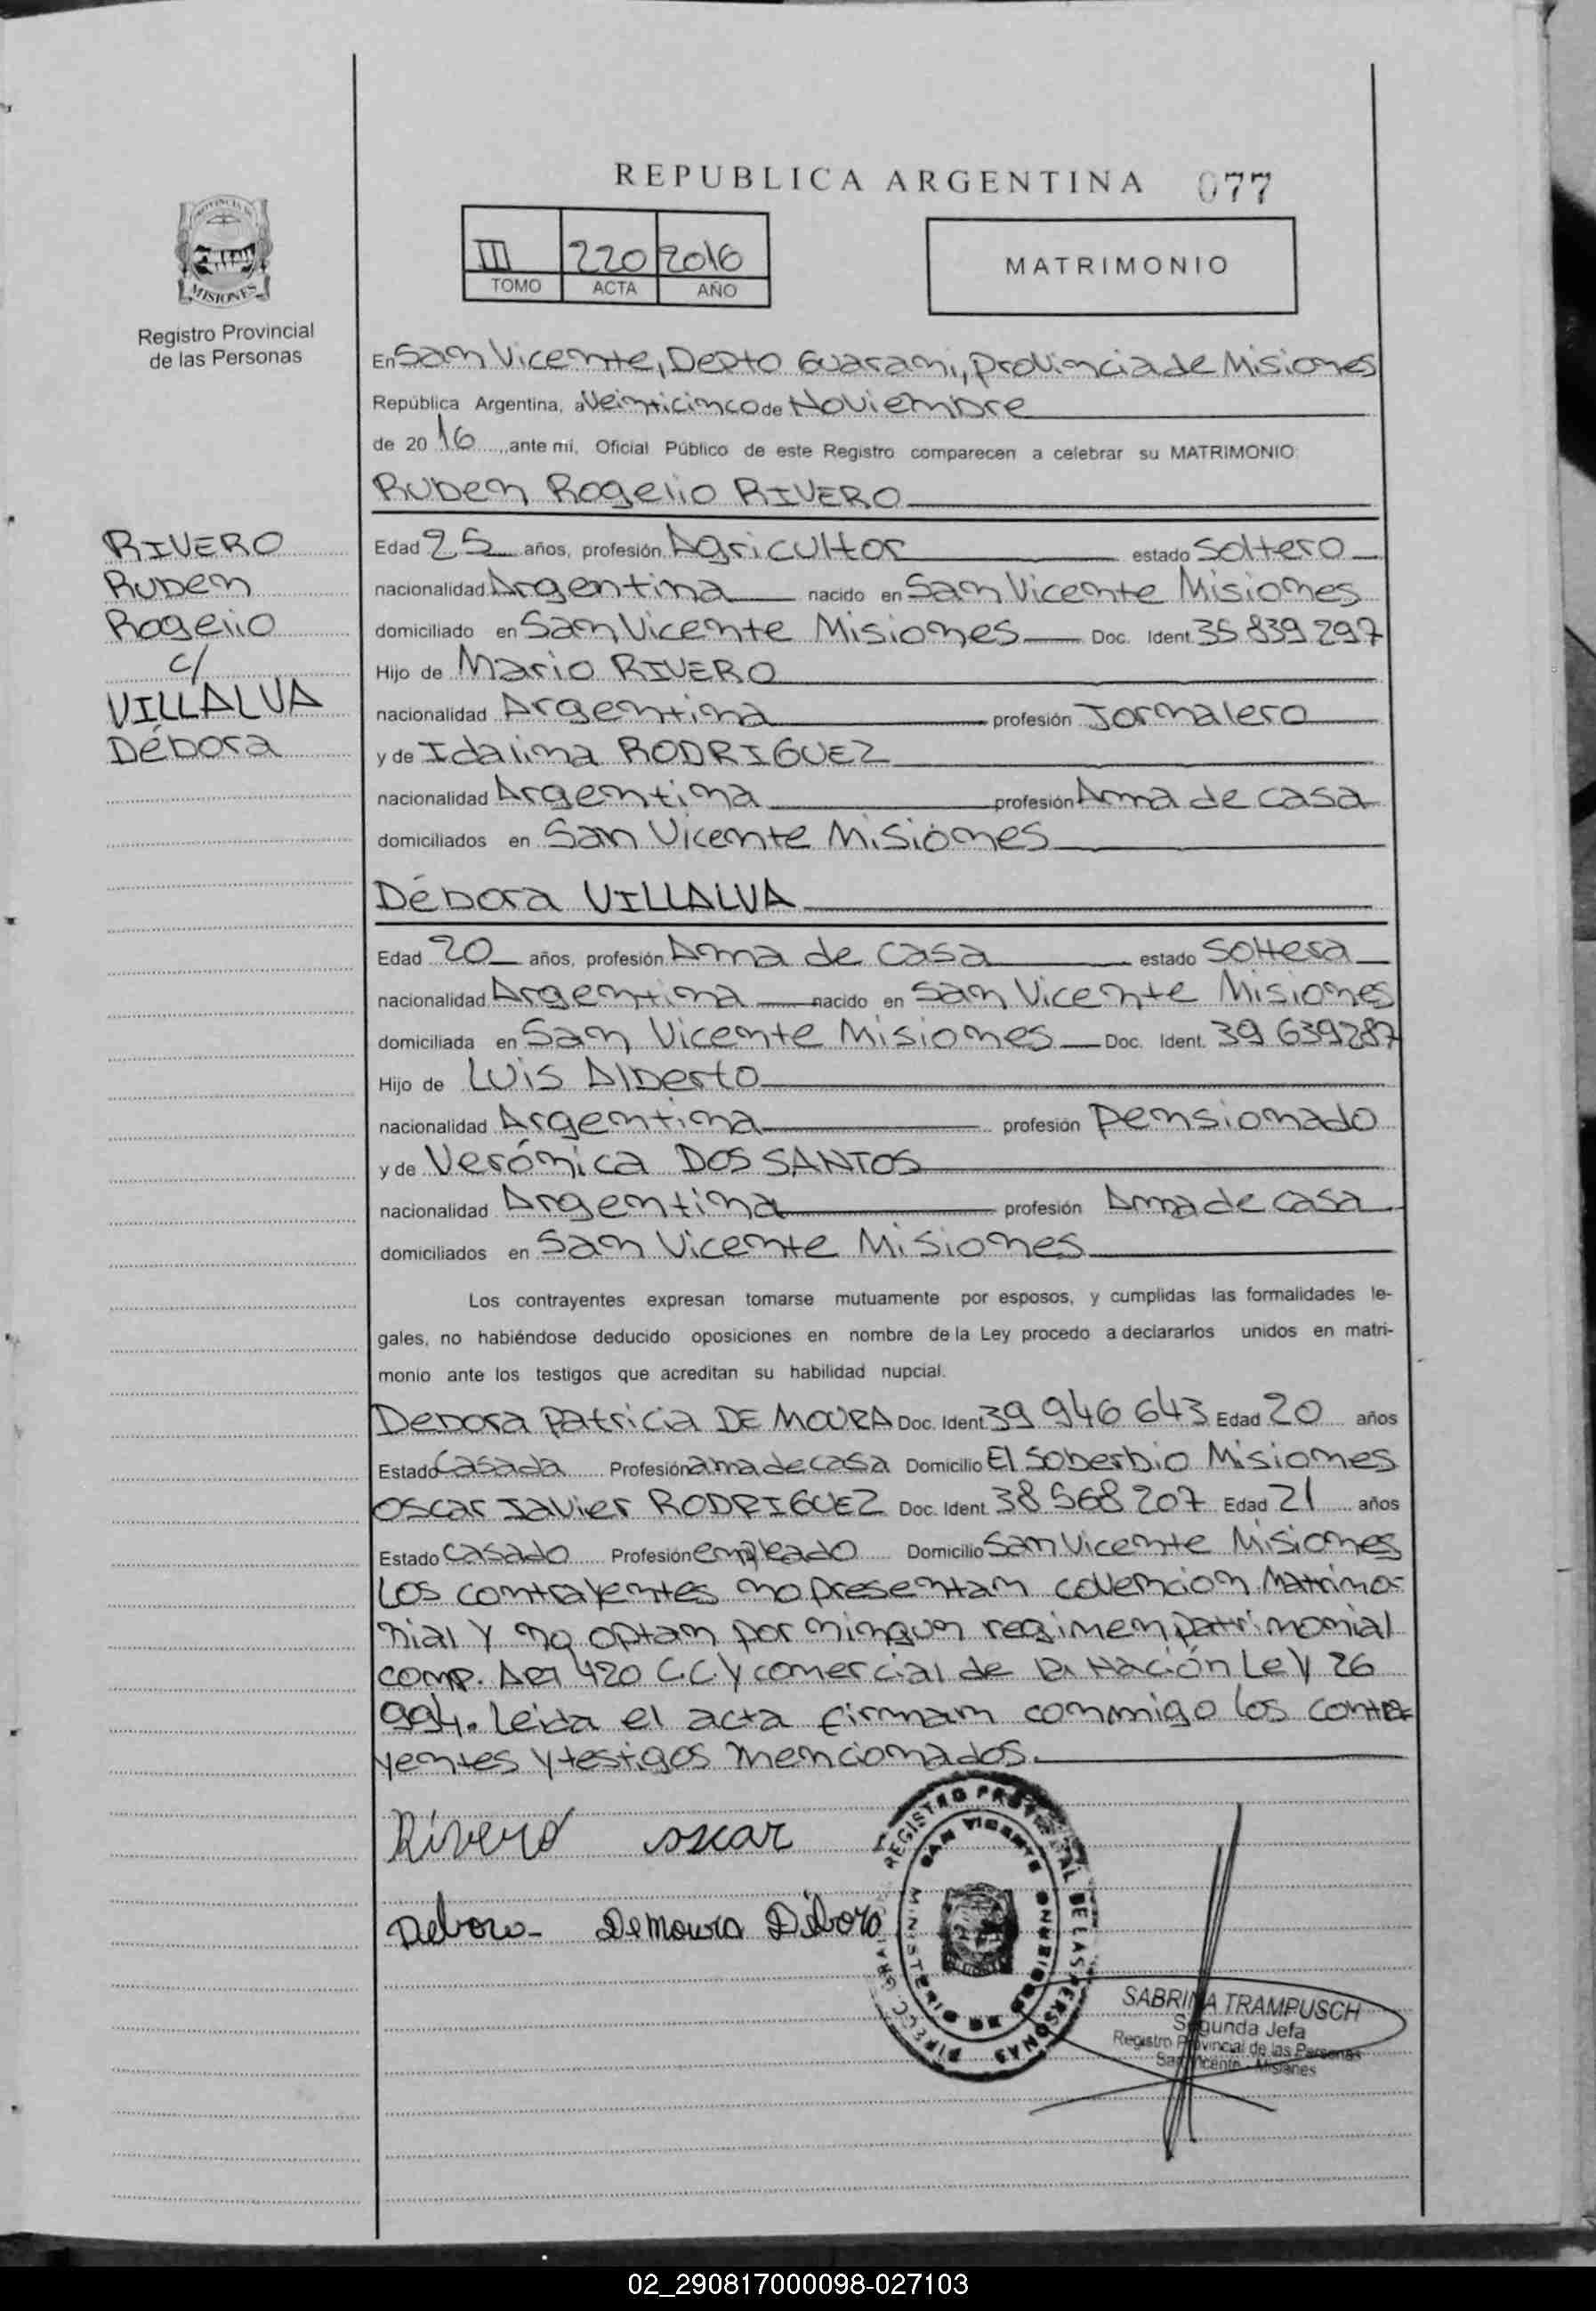 REPUBLICA ARGENTINA 077
PROVINCIA DE
MISIONES
Registro Provincial
de las Personas
III 220 2016
TOMO ACTA AÑO
MATRIMONIO
En San Vicente, Depto Guarani, Provincia de Misiones
República Argentina, a Veinticinco de Noviembre
de 2016, ante mí, Oficial Público de este Registro comparecen a celebrar su MATRIMONIO:
Ruben Rogelio RIVERO
RIVERO
Ruben
Rogelio
c/
VILLALVA
Débora
Edad 25 años, profesión Agricultor estado Soltero
nacionalidad Argentina nacido en San Vicente Misiones
domiciliado en San Vicente Misiones Doc. Ident. 35 839 297
Hijo de Mario RIVERO
nacionalidad Argentina profesión Jornalero
y de Idalina RODRIGUEZ
nacionalidad Argentina profesión Ama de casa
domiciliados en San Vicente Misiones
Débora VILLALVA
Edad 20 años, profesión Ama de casa estado Soltera
nacionalidad Argentina nacido en San Vicente Misiones
domiciliada en San Vicente Misiones Doc. Ident. 39 639287
Hijo de Luis Alberto
nacionalidad Argentina profesión Pensionado
y de Verónica DOS SANTOS
nacionalidad Argentina profesión Ama de casa
domiciliados en San Vicente Misiones
Los contrayentes expresan tomarse mutuamente por esposos, y cumplidas las formalidades le-
gales, no habiéndose deducido oposiciones en nombre de la Ley procedo a declararlos unidos en matri-
monio ante los testigos que acreditan su habilidad nupcial.
Debora Patricia DE MOURA Doc. Ident. 39 946 643 Edad 20 años
Estado Casada Profesión ama de casa Domicilio El Soberbio Misiones
Oscar Javier RODRIGUEZ Doc. Ident. 38 568 207 Edad 21 años
Estado Casado Profesión empleado Domicilio San Vicente Misiones
Los contrayentes no presentan covencion Matrimo-
nial y no optan por ningun regimen patrimonial
comp. Art 420 C.C. y comercial de la Nación Ley 26
994. Leida el acta firman conmigo los contra-
yentes y testigos mencionados.
Rivero oscar
Debora Demoura Débora
REGISTRO PROVINCIAL DE LAS PERSONAS
SAN VICENTE
SABRINA TRAMPUSCH
Segunda Jefa
Registro Provincial de las Personas
San Vicente - Misiones
02_290817000098-027103